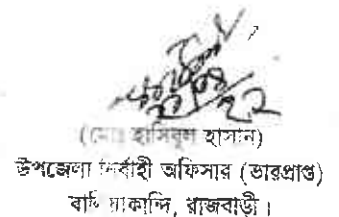 (মোঃ হাসিবুল হাসান)
উপজেলা নির্বাহী অফিসার (ভারপ্রাপ্ত)
বালিয়াকান্দি, রাজবাড়ী।